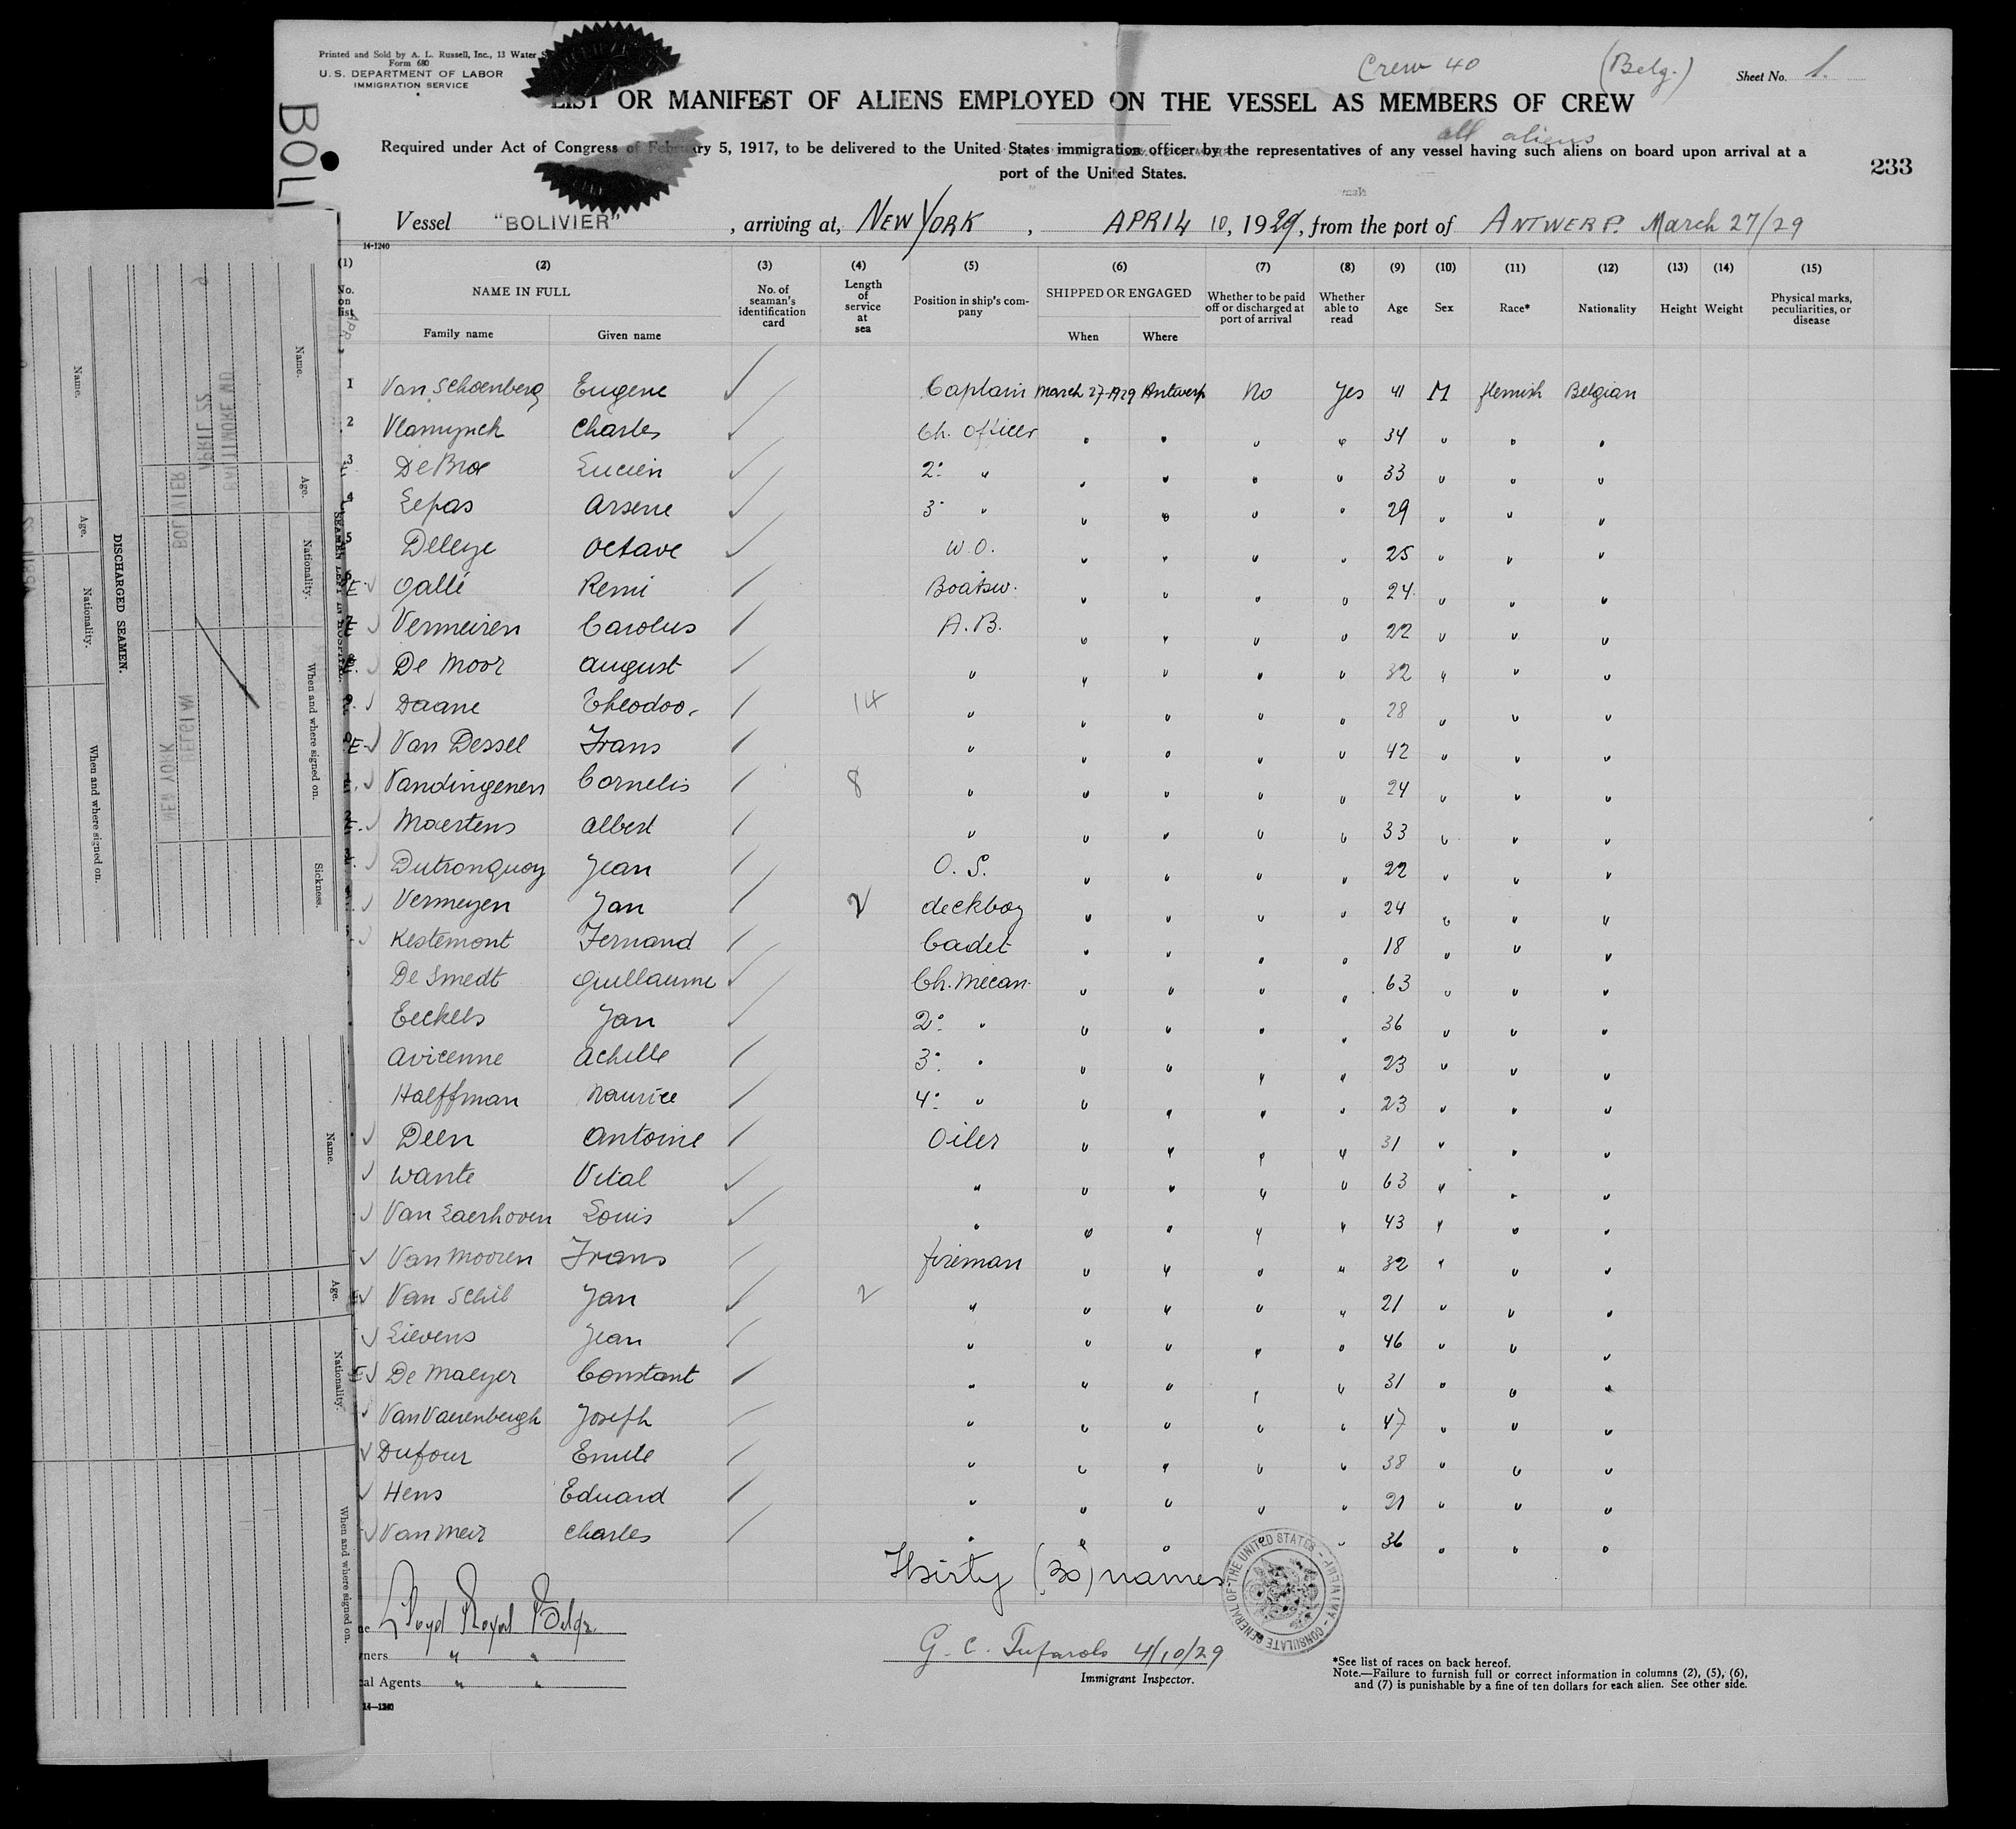 Printed and Sold by A. L. Russell, Inc., 13 Water
Form 680
U. S. DEPARTMENT OF LABOR
IMMIGRATION SERVICE
Crew 40 (Belg.) Sheet No. 1.
BOLI
LIST OR MANIFEST OF ALIENS EMPLOYED ON THE VESSEL AS MEMBERS OF CREW
all aliens
Required under Act of Congress of February 5, 1917, to be delivered to the United States immigration officer by the representatives of any vessel having such aliens on board upon arrival at a
port of the United States.
233
Vessel "BOLIVIER", arriving at, NEW YORK, APRIL 10, 1929, from the port of ANTWERP. March 27/29
14-1240
(1) (2) (3) (4) (5) (6) (7) (8) (9) (10) (11) (12) (13) (14) (15)
No. on list NAME IN FULL Family name Given name No. of seaman's identification card Length of service at sea Position in ship's company SHIPPED OR ENGAGED When Where Whether to be paid off or discharged at port of arrival Whether able to read Age Sex Race* Nationality Height Weight Physical marks, peculiarities, or disease
1 Van Schoenberg Eugene Captain March 27-1929 Antwerp No Yes 41 M flemish Belgian
2 Vlamynck Charles Ch. Officer " " " " 34 " " "
3 De Broe Lucien 2° " " " " " 33 " " "
4 Lepas Arsene 3° " " " " " 29 " " "
5 Deleye Octave W.O. " " " " 25 " " "
Gallé Remi Boatsw. " " " " 24 " " "
Vermeiren Carolus A.B. " " " " 22 " " "
De Moor August " " " " " 32 " " "
Daane Theodoor 14 " " " " " 28 " " "
Van Dessel Frans " " " " " 42 " " "
Vandingenen Cornelis 8 " " " " " 24 " " "
Maertens Albert " " " " " 33 " " "
Dutronquoy Jean O.S. " " " " 22 " " "
Vermeyen Jan 2 deckboy " " " " 24 " " "
Kestemont Fernand Cadet " " " " 18 " " "
De Smedt Guillaume Ch. Mecan. " " " " 63 " " "
Eeckels Jan 2° " " " " " 36 " " "
Avicenne Achille 3° " " " " " 23 " " "
Halffman Maurice 4° " " " " " 23 " " "
Deen Antoine Oiler " " " " 31 " " "
Wante Vital " " " " " 63 " " "
Van Laerhoven Louis " " " " " 43 " " "
Van Mooren Frans fireman " " " " 32 " " "
Van Schil Jan 2 " " " " " 21 " " "
Lievens Jean " " " " " 46 " " "
De Maeyer Constant " " " " " 31 " " "
Van Vaerenbergh Joseph " " " " " 47 " " "
Dufour Emile " " " " " 38 " " "
Hens Eduard " " " " " 21 " " "
Van Meir Charles " " " " " 36 " " "
Thirty (30) names
CONSULATE GENERAL OF THE UNITED STATES - ANTWERP -
Lloyd Royal Belge
ners " "
al Agents " "
14-1240
G. C. Tufarolo 4/10/29
Immigrant Inspector.
*See list of races on back hereof.
Note.—Failure to furnish full or correct information in columns (2), (5), (6),
and (7) is punishable by a fine of ten dollars for each alien. See other side.
DISCHARGED SEAMEN.
Name. Age. Nationality. When and where signed on.
SEAMEN LEFT IN HOSPITAL.
Name. Age. Nationality. When and where signed on. Sickness.
BOLIVIER
APRIL 22
BALTIMORE MD
NEW YORK
BELGIAN
Name. Age. Nationality. When and where signed on.